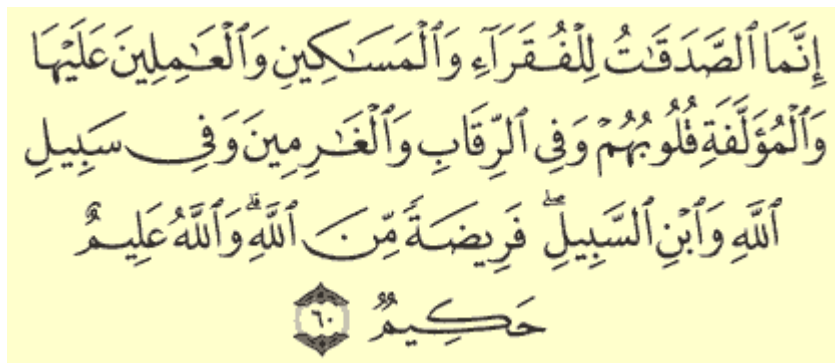 إِنَّمَا ٱلصَّدَقَـٰتُ لِلْفُقَرَآءِ وَٱلْمَسَـٰكِينِ وَٱلْعَـٰمِلِينَ عَلَيْهَا
وَٱلْمُؤَلَّفَةِ قُلُوبُهُمْ وَفِى ٱلرِّقَابِ وَٱلْغَـٰرِمِينَ وَفِى سَبِيلِ
ٱللَّهِ وَٱبْنِ ٱلسَّبِيلِ ۖ فَرِيضَةً مِّنَ ٱللَّهِ ۗ وَٱللَّهُ عَلِيمٌ
حَكِيمٌ ٦٠